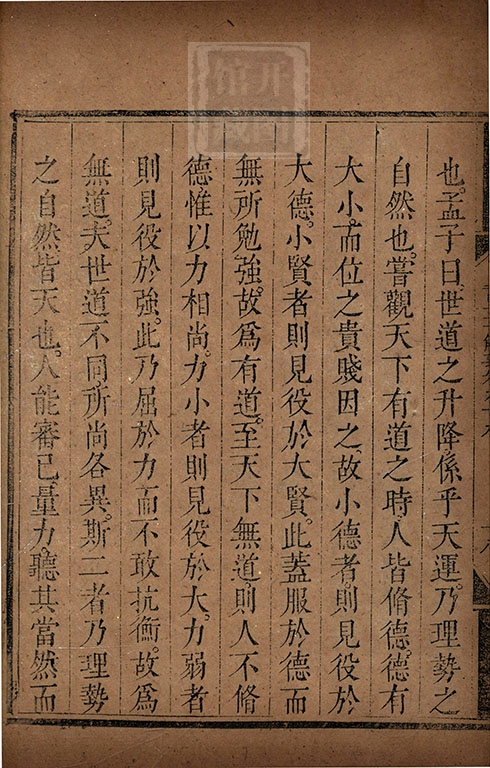 也孟子曰世道之升降係乎天運乃理勢之
自然也嘗觀天下有道之時人皆脩德德有
大小而位之貴賤因之故小德者則見役於
大德小賢者則見役於大賢此蓋服於德而
無所勉強故為有道至天下無道則人不脩
德惟以力相尚力小者則見役於大力弱者
則見役於強此乃屈於力而不敢抗衡故為
無道夫世道不同所尚各異斯二者乃理勢
之自然皆天也人能審已量力聽其當然而